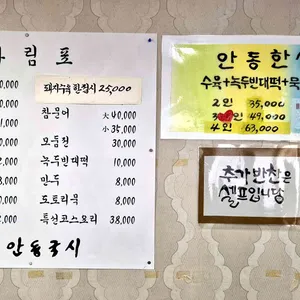 림표
돼지수육 한접시 25,000
참문어 大 40,000
小 35,000
모듬전 30,000
녹두빈대떡 10,000
만두 8,000
도토리묵 8,000
특선코스요리 38,000
안동국시
안동한
수육+녹두빈대떡+묵
2인 35,000
3인 49,000
4인 63,000
추가반찬은
셀프입니당